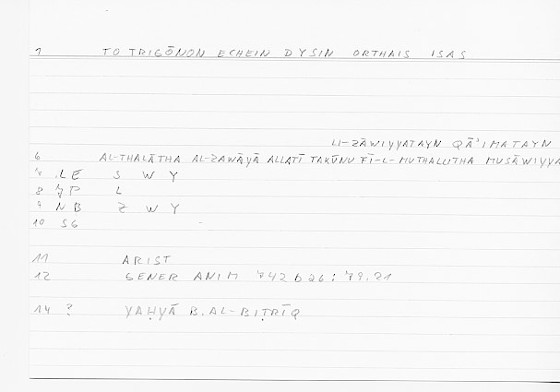 1 TO TRIGŌNON ECHEIN DYSIN ORTHAIS ISAS
LI-ZĀWIYYATAYN QĀʾIMATAYN
6 AL-THALĀTHA AL-ZAWĀYĀ ALLATĪ TAKŪNU FĪ-L-MUTHALLATHA MUSĀWIYYA
LE S W Y
8 L
9 NB Z W Y
10 SG
11 ARIST
12 GENER ANIM 742 b 26 ; 79.21
14 ? YAḤYĀ B. AL-BIṬRĪQ